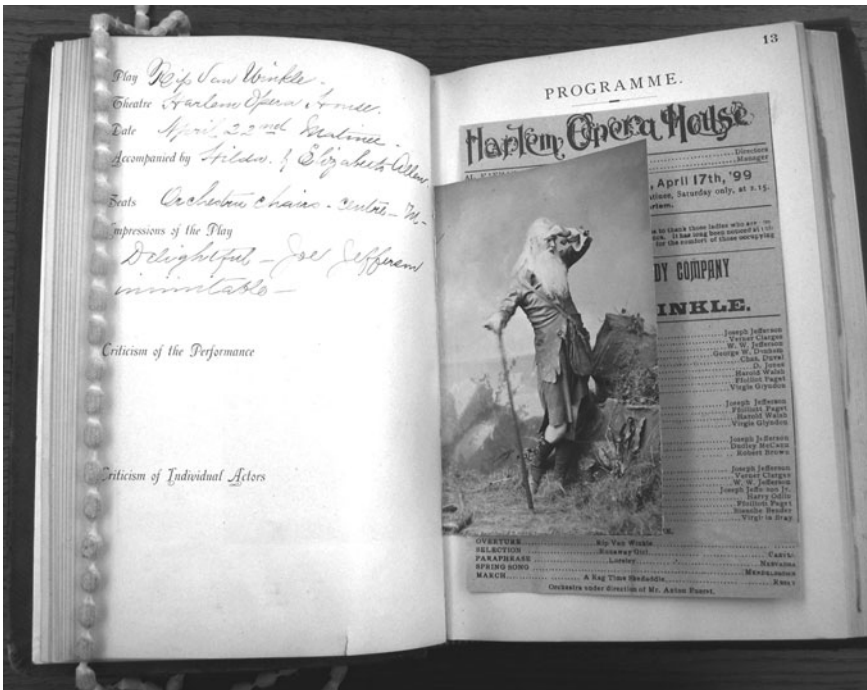 Play Rip Van Winkle.
Theatre Harlem Opera House.
Date April 22nd Matinee.
Accompanied by Hilda & Elizabeth Allen.
Seats Orchestra chairs - centre - M-
Impressions of the Play
Delightful - Joe Jefferson
inimitable -
Criticism of the Performance
Criticism of Individual Actors
13
PROGRAMME.
Harlem Opera House
Directors
Manager
, April 17th, '99
Matinee, Saturday only, at 2.15.
Harlem.
to thank those ladies who are
It has long been noticed at
for the comfort of those occupying
DY COMPANY
INKLE.
Joseph Jefferson
Verner Clarges
W. W. Jefferson
George W. Denham
Chas. Duval
D. Jones
Harold Walsh
Philliot Paget
Virgie Glyndon
Joseph Jefferson
Philliott Paget
Harold Walsh
Virgie Glyndon
Joseph Jefferson
Dudley McCann
Robert Brown
Joseph Jefferson
Verner Clarges
W. W. Jefferson
Joseph Jefferson Jr.
Harry Odlin
Philliott Paget
Blanche Bender
Virginia Bray
OVERTURE Rip Van Winkle
SELECTION Runaway Girl CARYLL
PARAPHRASE Loreley NESVADBA
SPRING SONG MENDELSSOHN
MARCH A Rag Time Skedaddle
Orchestra under direction of Mr. Anton